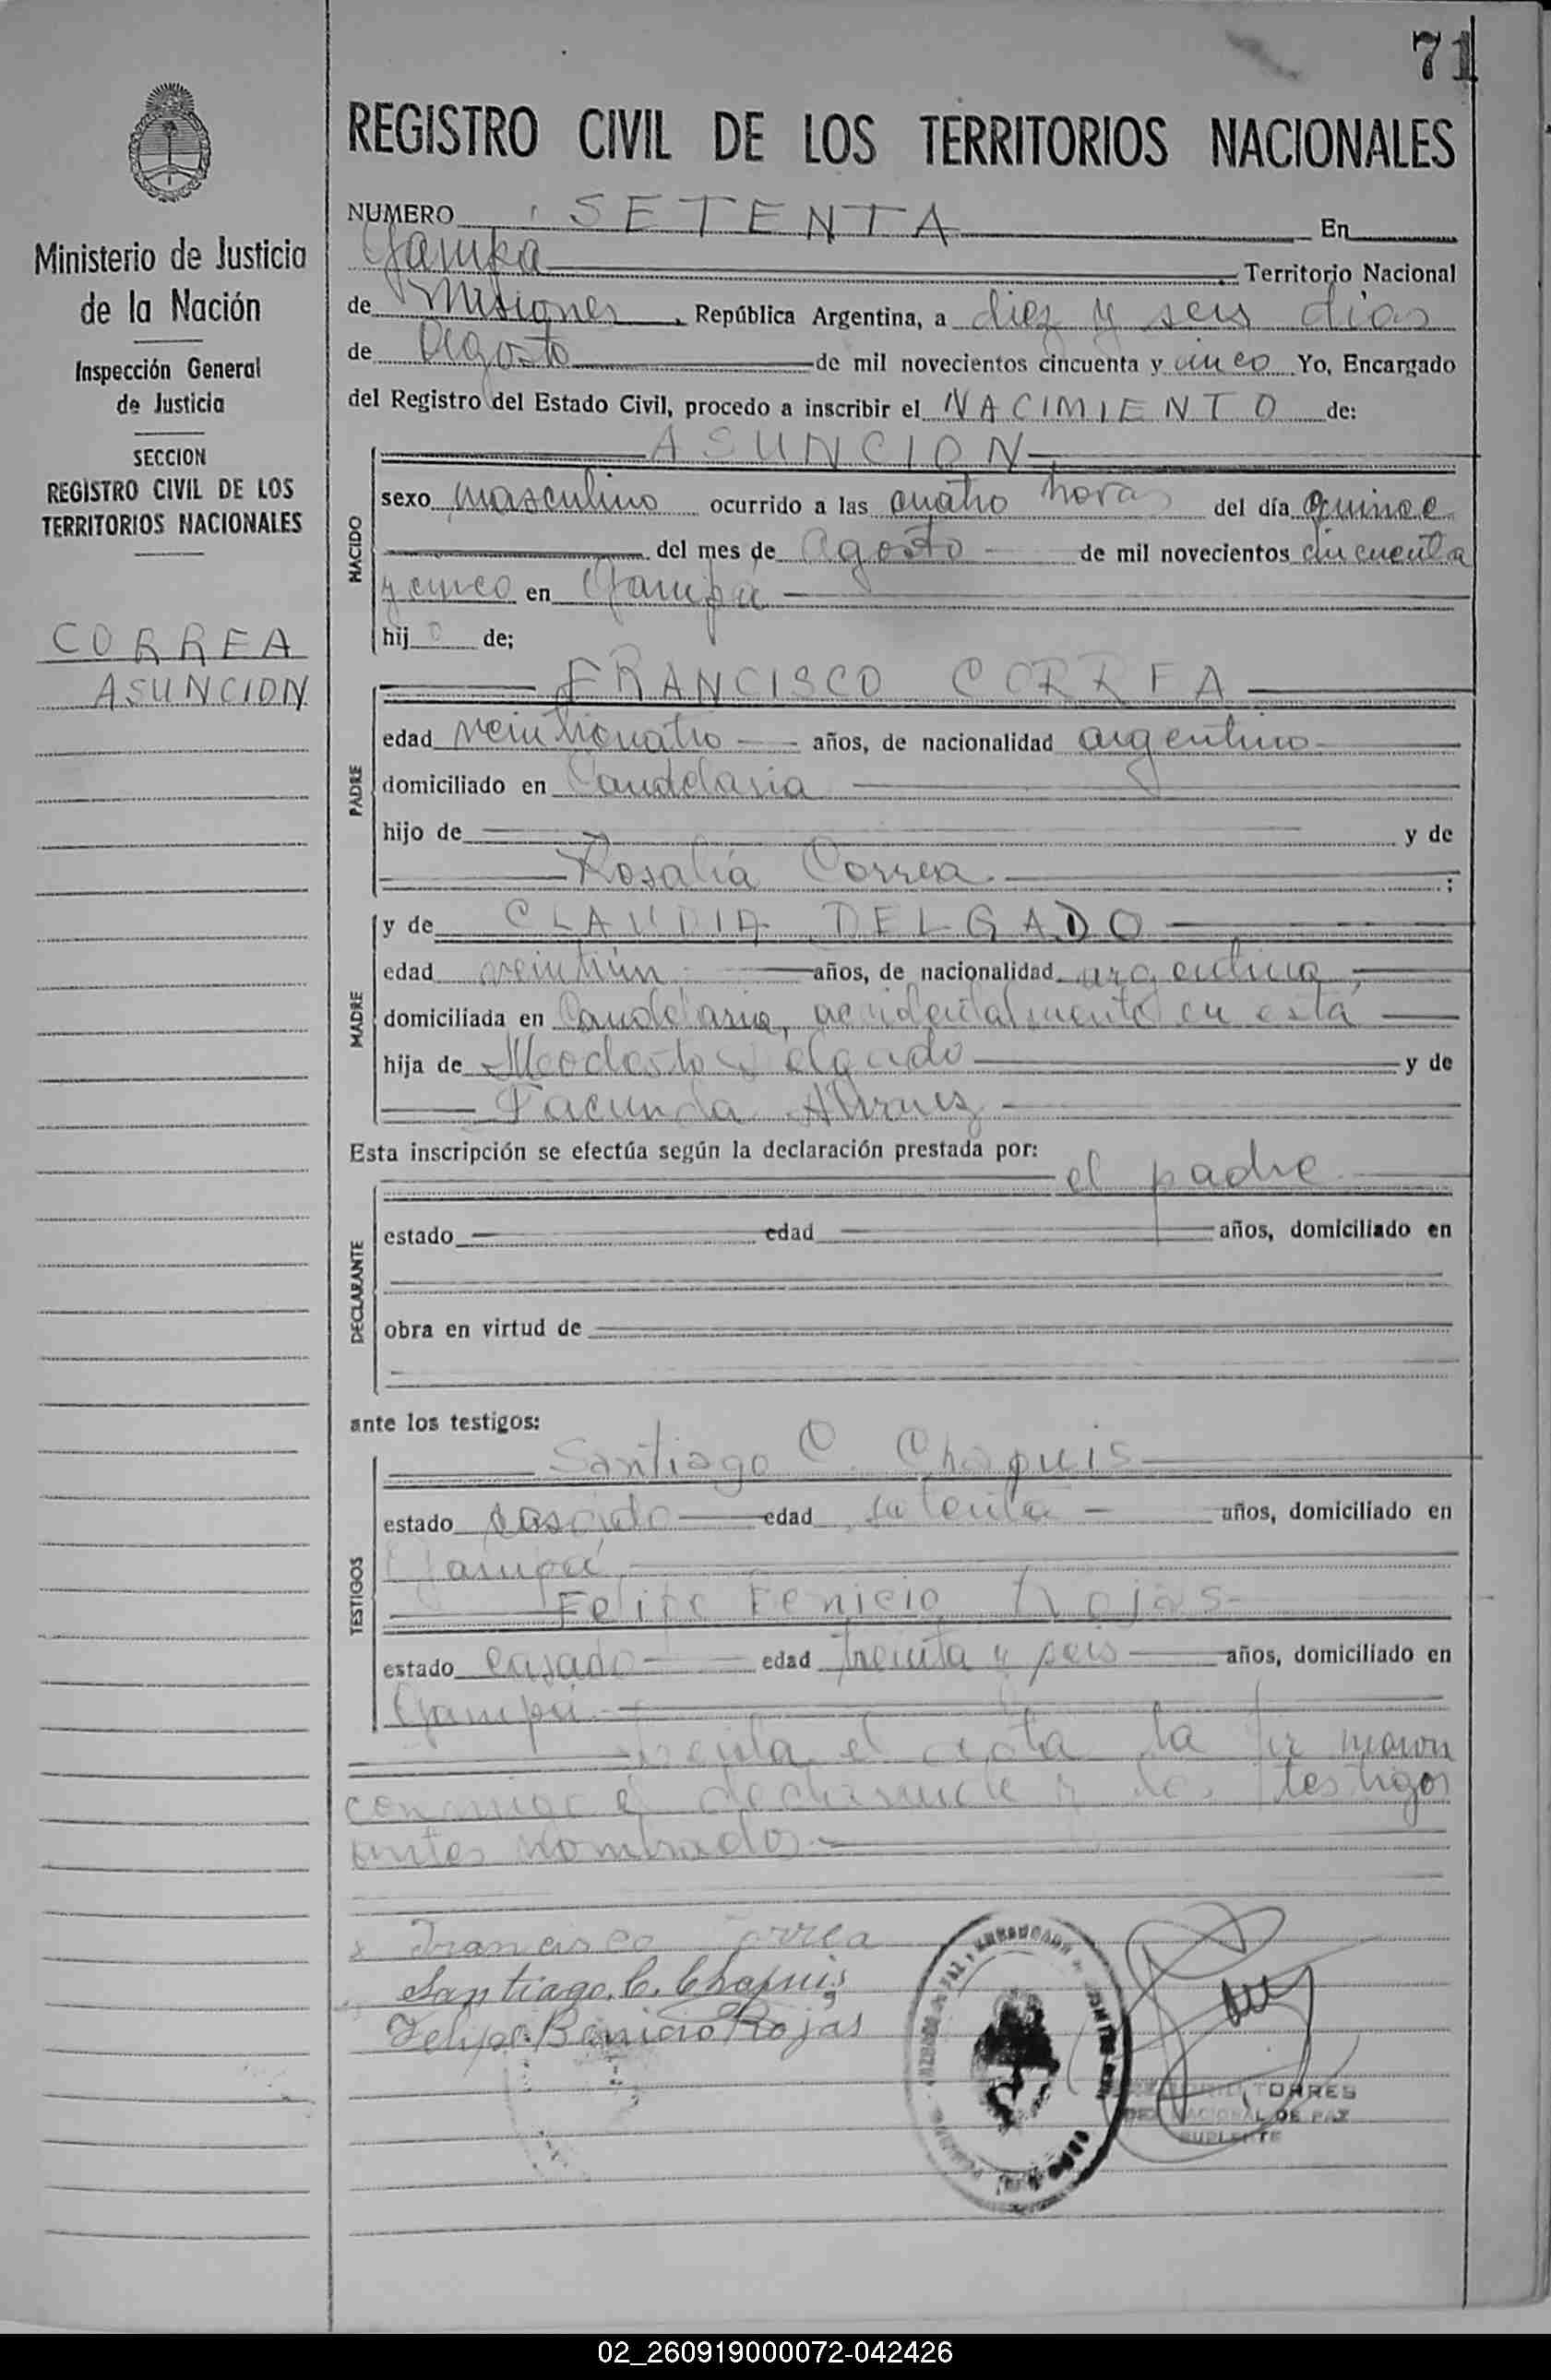 71
REGISTRO CIVIL DE LOS TERRITORIOS NACIONALES
Ministerio de Justicia
de la Nación
Inspección General
de Justicia
SECCION
REGISTRO CIVIL DE LOS
TERRITORIOS NACIONALES
CORREA
ASUNCION
NUMERO SETENTA En
Territorio Nacional
de Misiones, República Argentina, a diez y seis dias
de Agosto de mil novecientos cincuenta y cinco Yo, Encargado
del Registro del Estado Civil, procedo a inscribir el NACIMIENTO de:
ASUNCION
NACIDO
sexo masculino ocurrido a las cuatro horas del día quince
del mes de Agosto de mil novecientos cincuenta
y cinco en
hijo de;
FRANCISCO CORREA
PADRE
edad veinticuatro años, de nacionalidad argentino
domiciliado en Candelaria
hijo de y de
Rosalía Correa ;
MADRE
y de CLAUDIA DELGADO
edad veintiún años, de nacionalidad argentina,
domiciliada en Candelaria, accidentalmente en esta
hija de Modesto Delgado y de
Facunda
Esta inscripción se efectúa según la declaración prestada por:
el padre
DECLARANTE
estado edad años, domiciliado en
obra en virtud de
ante los testigos:
Santiago C. Chapuis
TESTIGOS
estado casado edad años, domiciliado en
Felipe Benicio Rojas
estado casado edad treinta y seis años, domiciliado en
el acta la firmaron
conmigo el declarante y los testigos
antes nombrados
x Francisco Correa
Santiago C. Chapuis
Felipe Benicio Rojas
TORRES
NACIONAL DE PAZ
SUPLENTE
02_260919000072-042426